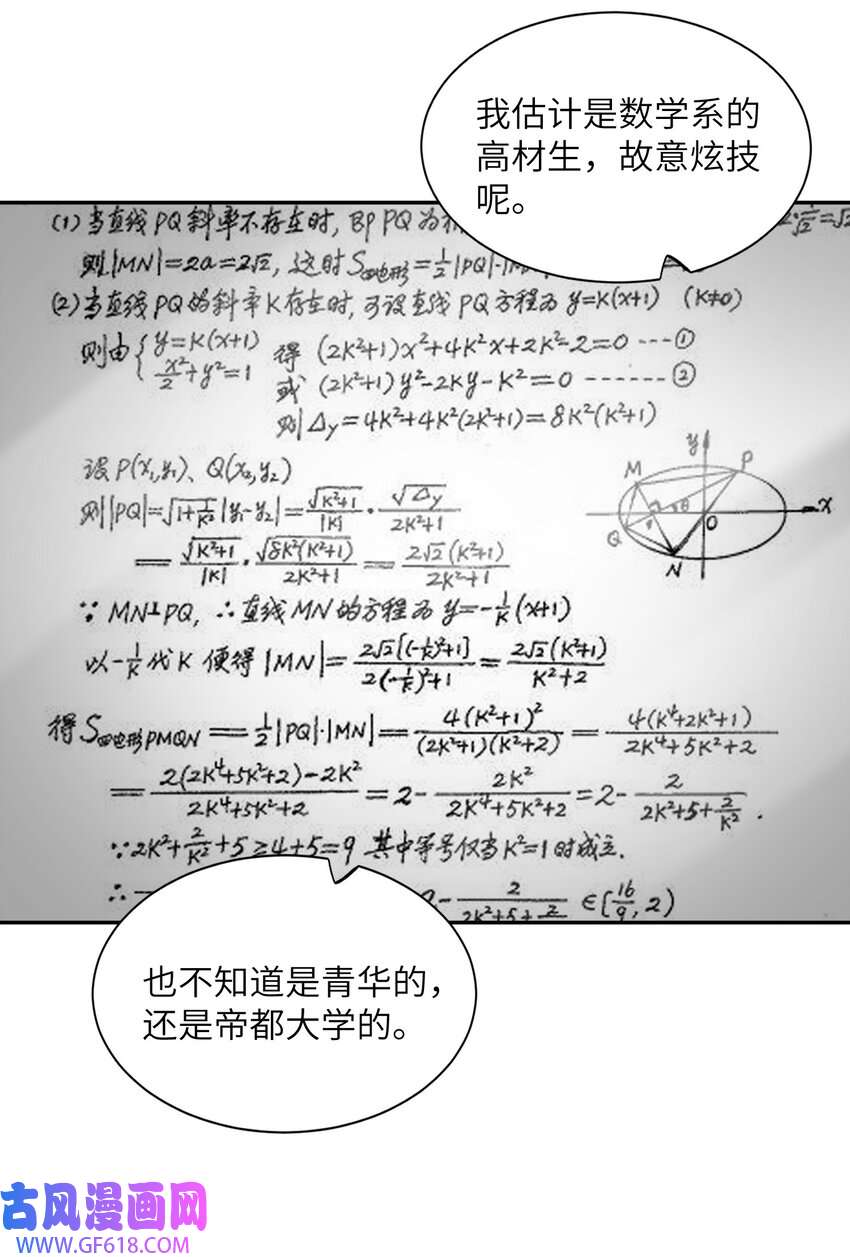 我估计是数学系的
高材生，故意炫技
呢。
(1)当直线PQ斜率不存在时，即PQ为
则|MN|=2a=2√2，这时S四边形=½|PQ|·|M
(2)当直线PQ的斜率K存在时，可设直线PQ方程为 y=K(x+1) (K≠0)
则由{y=K(x+1) x²/2+y²=1 得 (2K²+1)x²+4K²x+2K²-2=0 ---①
或 (2K²+1)y²-2Ky-K²=0 ------②
则Δy=4K²+4K²(2K²+1)=8K²(K²+1)
设P(x₁,y₁)、Q(x₂,y₂)
则|PQ|=√(1+1/K²)|y₁-y₂|=√(K²+1)/|K|·√Δy/(2K²+1)
=√(K²+1)/|K|·√(8K²(K²+1))/(2K²+1)=2√2(K²+1)/(2K²+1)
y
P
M
θ
x
O
Q
N
∵MN⊥PQ，∴直线MN的方程为 y=-1/K(x+1)
以-1/K代K 便得|MN|=2√2[(-1/K)²+1]/(2(-1/K)²+1)=2√2(K²+1)/(K²+2)
得S四边形PMQN=½|PQ|·|MN|=4(K²+1)²/((2K²+1)(K²+2))=4(K⁴+2K²+1)/(2K⁴+5K²+2)
=(2(2K⁴+5K²+2)-2K²)/(2K⁴+5K²+2)=2-2K²/(2K⁴+5K²+2)=2-2/(2K²+5+2/K²).
∵2K²+2/K²+5≥4+5=9 其中等号仅当K²=1时成立.
∴ 2-2/(2K²+5+2 ∈[16/9,2)
也不知道是青华的，
还是帝都大学的。
古风漫画网
WWW.GF618.COM